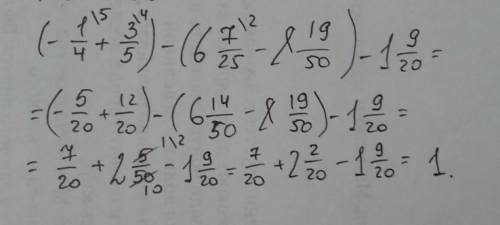 (-1/4\5 + 3/5\4) - (6 7/25\2 - 8 19/50) - 1 9/20 =
= (-5/20 + 12/20) - (6 14/50 - 8 19/50) - 1 9/20 =
= 7/20 + 2 5/50 10 1\2 - 1 9/20 = 7/20 + 2 2/20 - 1 9/20 = 1.